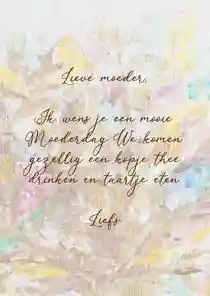 Lieve moeder,
Ik wens je een mooie
Moederdag We komen
gezellig een kopje thee
drinken en taartje eten.
Liefs